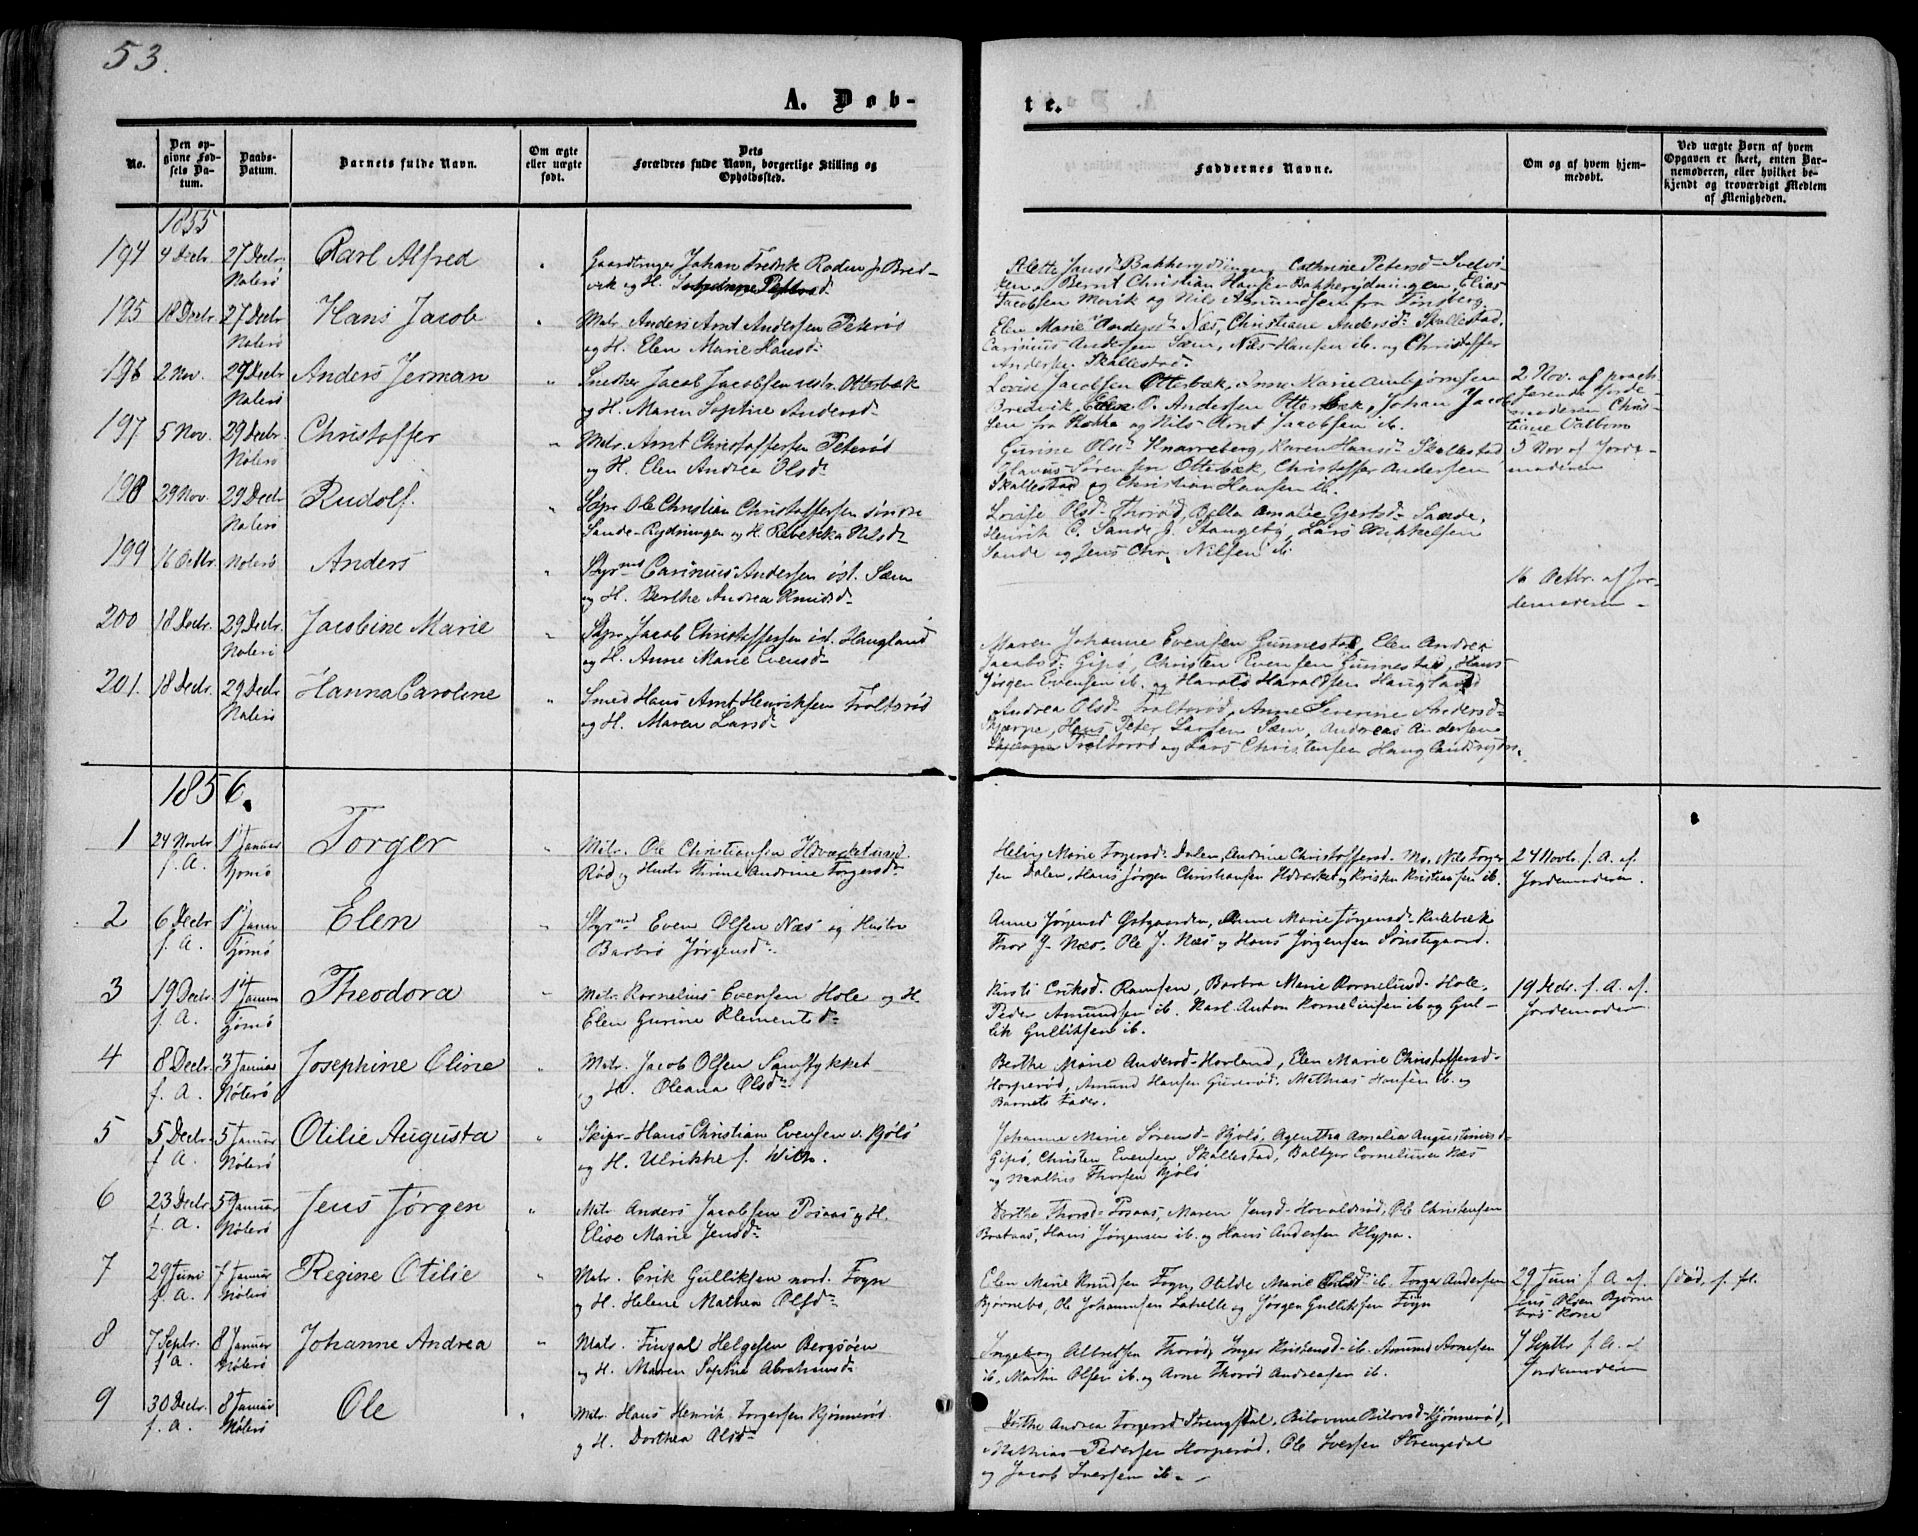 53.
A. Døb-
te.
No.
Den op-
givne Fød-
sels Da-
tum.
Daabs-
Datum.
Barnets fulde Navn.
Om ægte
eller uægte
født.
Dets
Forældres fulde Navn, borgerlige Stilling og
Opholdssted.
Faddernes Navne.
Om og af hvem hjem-
medøbt.
Ved uægte Børn af hvem
Opgaven er skeet, enten Bar-
nemoderen, eller hvilket be-
kjendt og troværdigt Medlem
af Menigheden.
1855
194 4 Decbr. 27 Decbr. Carl Alfred " Gaardbruger Johan Fredrik Roden p. Bred-
Nøterø vik og H.
Alette Jansd. Bakkerydningen, Cathrine Petersd. Svelvi-
ken, Bernt Christian Hansen Bakkerydningen, Elias
Jacobsen Mevik og Nils Amundsen fra Tønsberg.
195 18 Decbr 27 Decbr Hans Jacob " Matr. Anders Arnt Andersen Peterød
Nøterø og H. Elen Marie Hansd.
Elen Marie Andersd. Næs, Christiane Andersd. Skallestad,
Carinius Andersen Sæm, Nils Hansen ib. og Christoffer
Anders. Skallestad.
196 2 Nov. 29 Decbr Anders Jerman " Snedker Jacob Jacobsen vestr. Otterbæk
Nøterø og H. Maren Sophie Andersd.
Lovise Jacobsen Otterbæk, Anne Marie Arnbjørnsen
Bredvik, O. Andersen Otterbæk, Johan Jacob-
sen fra og Nils Arnt Jacobsen ib.
2 Nov. af prack-
tiserende Jorde-
moderen Chris-
tine Valbom
197 5 Nov. 29 Decbr. Christoffer " Matr. Arnt Christoffersen Peterød
Nøterø og H. Elen Andrea Olsd.
Gurine Olsd. Knarreberg, Karen Hansd. Skallestad
Olavus Sørensen Otterbæk, Christoffer Andersen
Skallestad og Christian Hansen ib.
5 Nov af Jorde-
moderen
198 29 Nov. 29 Decbr Rudolf. Skpr Ole Christian Christoffersen søndre
Nøterø Sande-Rydningen og H. Rebekka Nilsd.
Lovise Olsd. Thorød, Bella Amalie Gjertsd. Sande,
Henrik C. Sande p. Stangeby, Lars Mikkelsen
Sande og Jens Chr. Nilsen ib.
199 16 Octbr. Nøterø Anders " Styrmd Carinius Andersen øst. Sæm
og H. Berthe Andrea Knudsd.
16 Octbr. af Jor-
demoderen
200 18 Decbr. 29 Decbr. Jacobine Marie " Skpr Jacob Christoffersen øst. Haugland
Nøterø og H. Anne Marie Evensd.
Maren Johanne Evensen Gunnestad, Elen Andrea
Jacobsd. Gipø, Christen Evensen Gunnestad, Hans
Jørgen Evensen ib. og Harald Haraldsen Haugland
201. 18 Decbr. 29 Decbr Hanna Caroline " Smed Hans Arnt Henriksen Troltsrød
Nøterø og H. Maren Larsd.
Andrea Olsd. Troltsrød, Anne Severine Andersd.
Skjærpe, Hans Peter Larsen Sæm, Andreas Andersen
Troltsrød og Lars Christensen Hauglandrydn.
1856.
1 24 Novbr 1 Januar Torger " Matr. Ole Christiansen Hvarket und.
f. A. Tjømø Rød og Hustr Thrine Andrine Torgersd.
Helvig Marie Torgersd. Dalen, Andrine Christoffersd. Mo, Nils Torger-
sen Dalen, Hans Jørgen Christiansen Hvarket og Kristen Kristiansen ib.
24 Novbr. f. A. af
Jordemoderen
2 6 Decbr 1 Janu Elen " Styrmd Even Olsen Næs og Hustru
f. A. Tjømø Barbro Jørgensd.
Anne Jørgensd Østgaarden, Anne Marie Jørgensd. Kulebæk
Thor J. Næs, Ole J. Næs og Hans Jørgensen Søndtegaard.
3 19 Decbr 1 Januar Theodora " Matr Kornelius Evensen Hole og H
f. A. Tjømø Elen Gurine Klementsd.
Kirsti Eriksd. Ramsen, Barbra Marie Korneliusd. Hole,
Peder Amundsen ib. Karl Anton Korneliusen ib og Gul-
lik Gulliksen ib.
19 Decbr. f. A. af.
Jordemoderen
4 8 Decbr. 3 Januar Josephine Oline " Matr. Jacob Olsen Sandstykket
f. A. Nøterø og H. Oleana Olsd.
Berthe Marie Andersd. Horland, Elen Marie Christoffersd.
Horperød, Amund Hansen Gurerød, Mathias Hansen ib. og
Barnets Fader.
5 5 Decbr. 5 Januar Otilie Augusta " Skipr Hans Christian Evensen v. Kjøls
f. A. Nøterø og H. Ulrikke f. With.
Johanne Marie Sørensd. Kjøls, Agentha Amalia Augustinusd.
Gipø, Christen Evensen, Skallestad, Baltzer Corneliusen Næs
og Mathis Thorsen Kjøls
6 23 Decbr 5 Januar Jens Jørgen " Matr Anders Jacobsen Posaas og H.
f. A. Nøterø Elise Marie Jensd.
Dorthe Thorsd. Posaas, Maren Jensd. Hovaldsrød, Ole Christensen
Brataas, Hans Jørgensen ib. og Hans Andersen Klypa.
7 29 Juni 7 Januar Regine Otilie " Matr. Erik Gulliksen nord. Føyn
f. A. Nøterø og H. Helene Mathea Olsd.
Elen Marie Knudsen Føyn, Otilde Marie ib. Torger Andersen
Bjørnebo, Ole Johannsen Labelle og Jørgen Gulliksen Føyn
29 Juni f. A af
Jens Olsen Bjørne
bos Kone
(død, f. fl.
8 7 Septr. 8 Januar Johanne Andrea " Matr. Fingal Helgesen Bergsøen
f. A. Nøterø og H. Maren Sophie Abrahamsd.
Ingeborg Albretsen Thorød, Inger Kristensd. ib. Amund Arnesen
ib. Martin Olsen ib. og Arne Thorød Andreasen ib.
7 Septbr f. A. af
Jordemoderen
9 30 Decbr. 8 Januar Ole " Matr. Hans Henrik Torgersen Kjønnerød
f. A. Nøterø og H. Dorthea Olsd.
Dorthe Andrea Torgersd Strengsdal, Bilovine Bilovsd. Kjønnerød,
Mathias Pedersen Horperød, Ole Iversen Strengsdal
og Jacob Iversen ib.